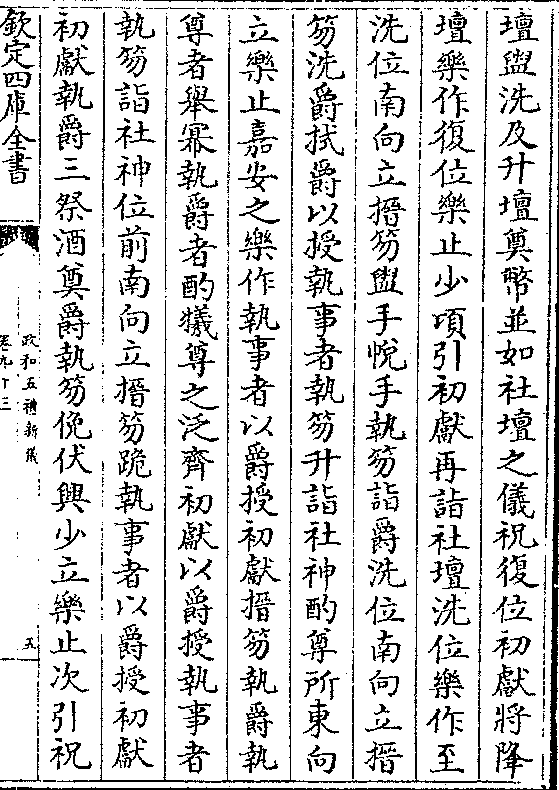 壇盥洗及升壇奠幣並如社壇之儀祝復位初獻將降
壇樂作復位樂止少頃引初獻再詣社壇洗位樂作至
洗位南向立搢笏盥手帨手執笏詣爵洗位南向立搢
笏洗爵拭爵以授執事者執笏升詣社神酌尊所東向
立樂止嘉安之樂作執事者以爵授初獻搢笏執爵執
尊者舉冪執爵者酌犧尊之泛齊初獻以爵授執事者
執笏詣社神位前南向立搢笏跪執事者以爵授初獻
初獻執爵三祭酒奠爵執笏俛伏興少立樂止次引祝
欽定四庫全書
政和五禮新儀
卷九十三
五